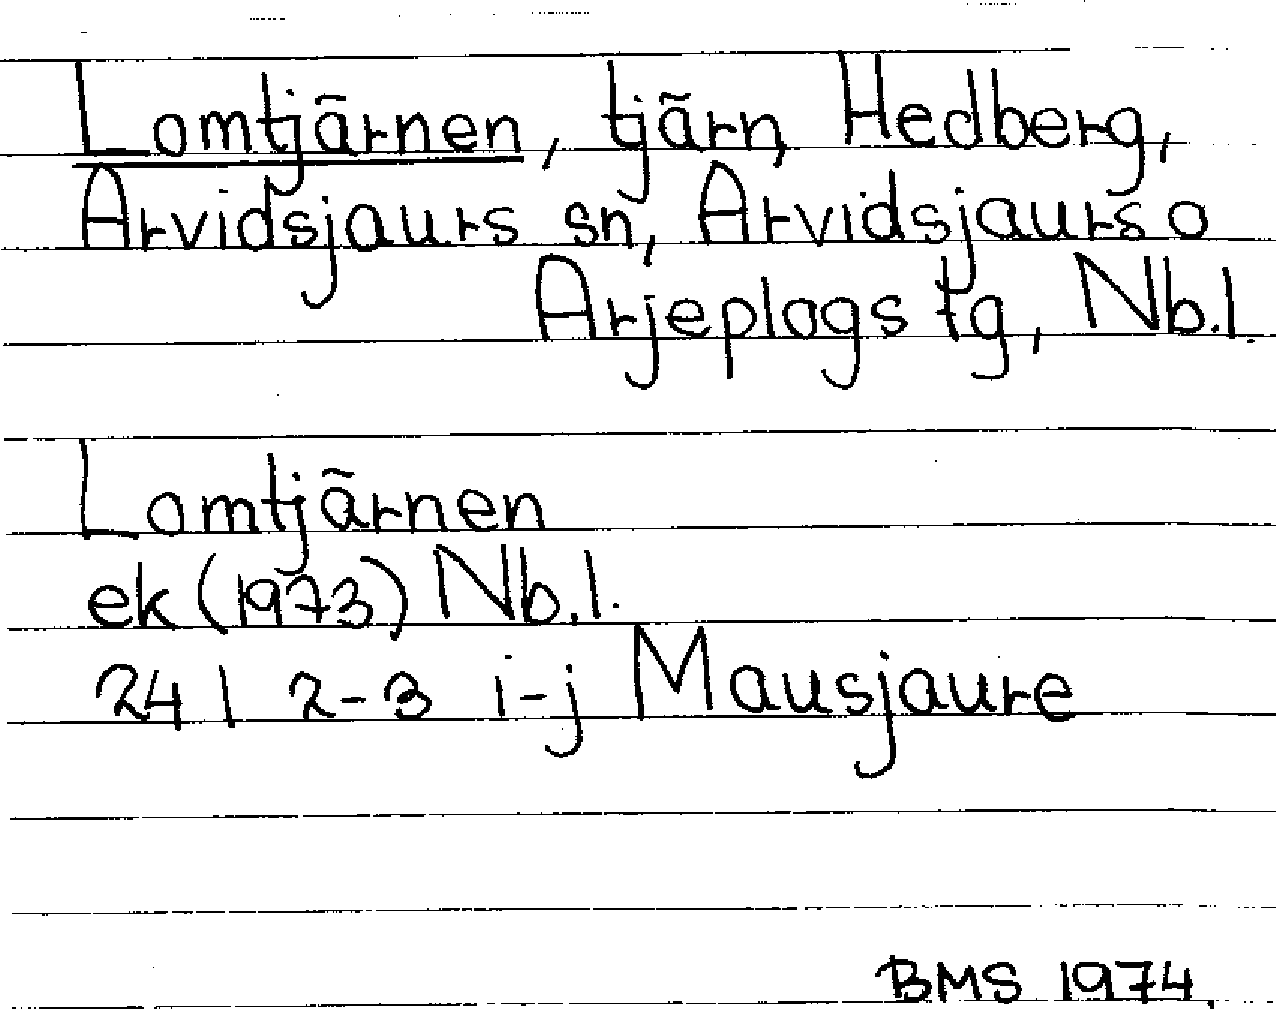 Lomtjärnen, tjärn, Hedberg,
Arvidsjaurs sn, Arvidsjaurs o
Arjeplogs tg, Nb.l.
Lomtjärnen
ek (1973) Nb.l.
24 I 2-3 i-j Mausjaure
BMS 1974.